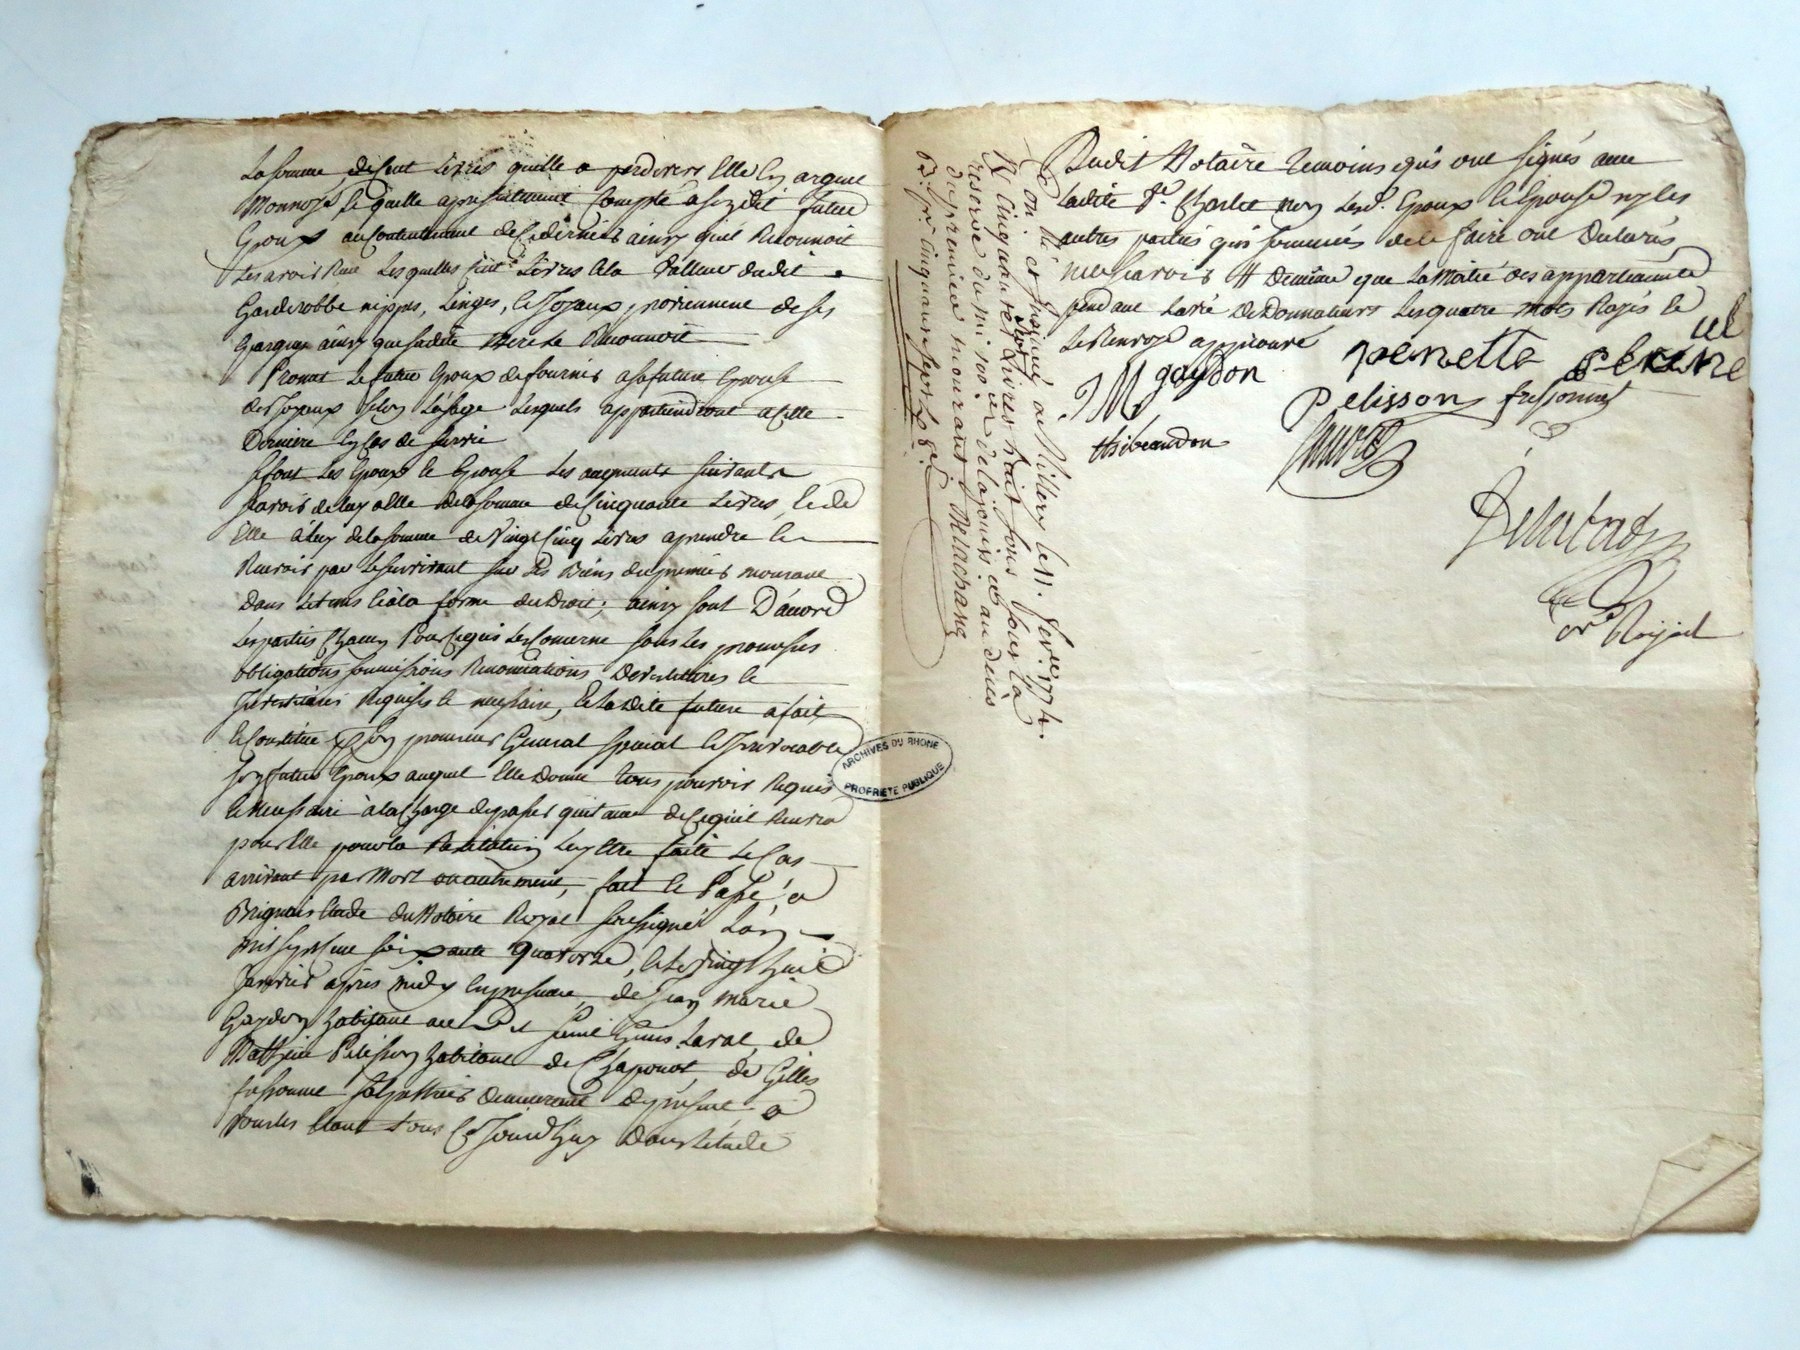 La somme de cent Livres quelle a pardevers Elle En argent
Monnoyé Lequelle a presentement Compté a sondit futur
Epoux au Contentement de Ce dernier ainsy quil Reconnoit
Les avoir Reçu Lesquelles Cent Livres Et la Valleur dudit
Garderobbe nippes, Linges, Et Joyaux proviennent de ses
Epargnes ainsy que ladite Mere le Reconnoit
Promet Le futur Epoux de fournir a sa future Epouse
des Joyaux selon L'usage Lesquels appartiendront a Cette
Derniere En Cas de survie
Se font Les Epoux et Epouse Les augments suivants
scavoir de luy a Elle de la somme de Cinquante Livres, Et de
Elle à luy de la somme de Vingt Cinq Livres a prendre Et
Recevoir par Le survivant sur Les Biens du premier mourant
Dans Le tems Et à la forme du Droit; ainsy sont D'accord
Les parties Chacun Pour Ce qui Les Concerne sous Les promesses
obligations soumissions Renonciations
Requises Et necessaire, Et Ladite future a fait
Et Constitue pour son procureur General special Et Irrevocable
son futur Epoux auquel Elle Donne tous pouvoir Requis
Et Necessaire à la Charge de passer quittance de Ce qu'il Recevra
pour Elle pour la Restitution En Etre faite Le Cas
arrivant par Mort ou autrement, fait Et Passé, a
Brignais Etude du Notaire Royal soussigné L'an
mil sept Cent soixante quatorze, Et Le vingt huit
Janvier après midy En presence de Jean Marie
Gaydon habitant au dit Saint Genis Laval, de
Mathieu Pelisson habitant de Chaponot, de Gilles
fressonnet salpetrier demeurant de present a
Etant tous Ce Jourd'huy Dans Letude
On. Né et Insinué a Millery le 11. fevr. 1774.
R. Cinquante sept Livres huit sous sous la
reserve du mi 100ier de la jouiss. ce au deces
du premier mourant Delachanq
Bd. pr. cinquante sept L. 8 s.
Dudit Notaire Temoins qui ont signés avec
Ladite De. Charlet non Lesd. Epoux Et Epouse ny les
autres parties qui sommés de le faire ont Declarés
ne scavoir # demeure que La Moitié des appartiendra
pendant La vie De Donnateurs Les quatre mots Rayés Et
Le Renvoye approuvé
JM gaydon
penette
Pelisson
fressonnet
thibeaudon
Delabady
nre Royal
ARCHIVES DU RHONE
PROPRIETE PUBLIQUE